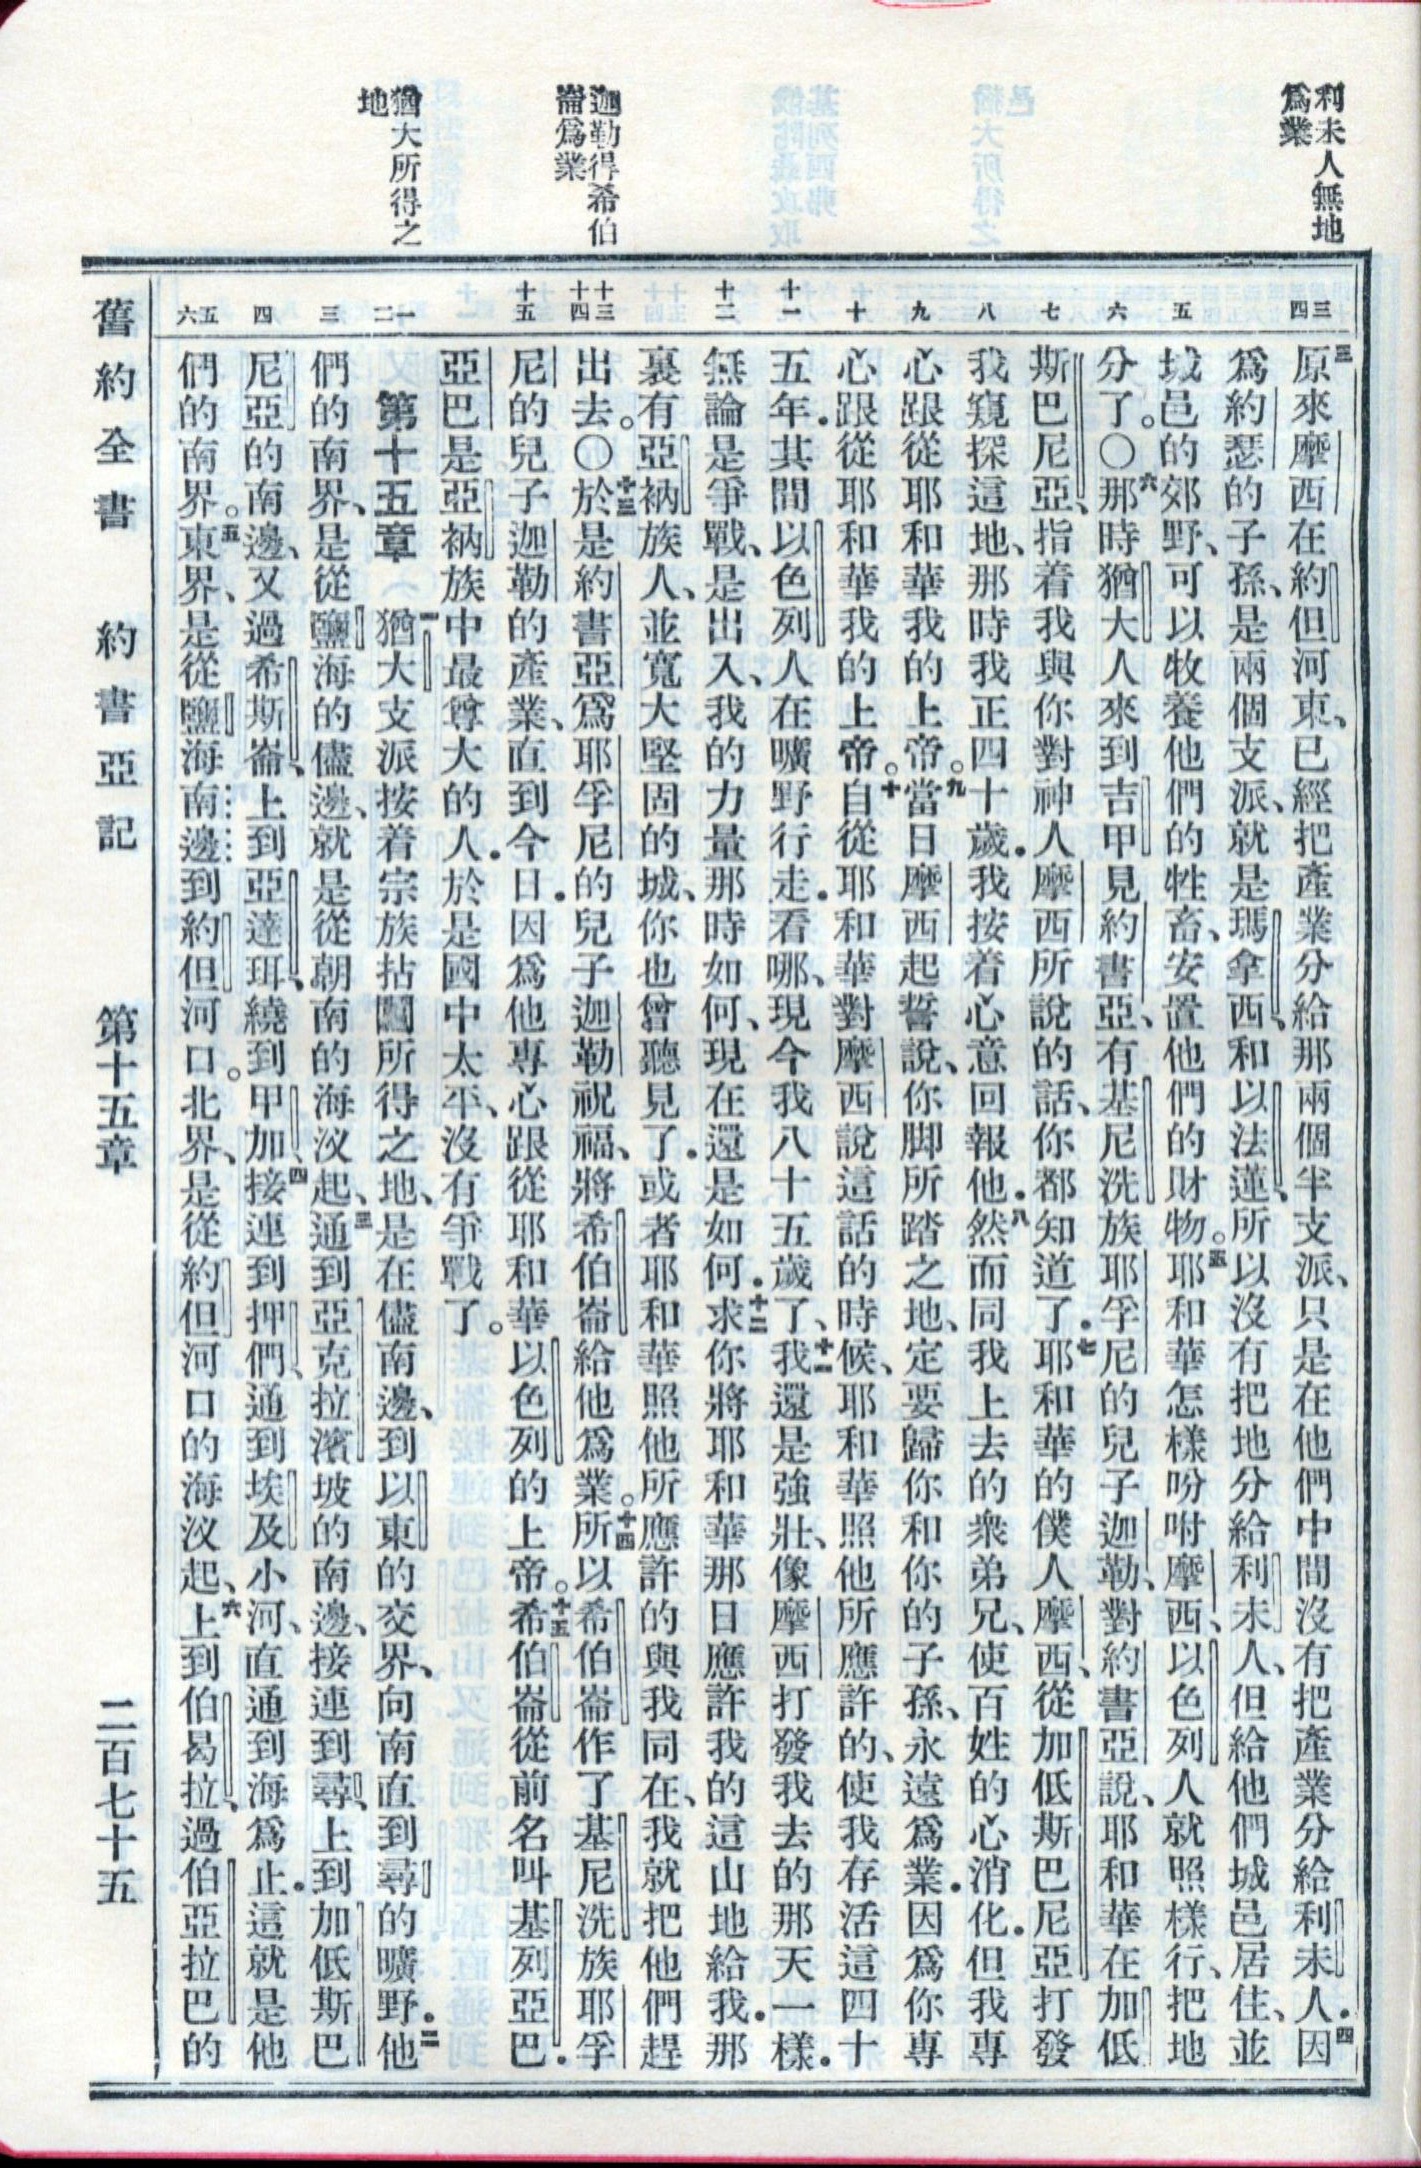 利未人無地
爲業
迦勒得希伯
崙爲業
猶大所得之
地
三
四
五
六
七
八
九
十
十一
十二
十三
十四
十五
一
二
三
四
五
六
三原來摩西在約但河東、已經把產業分給那兩個半支派、只是在他們中間沒有把產業分給利未人．四因
爲約瑟的子孫、是兩個支派、就是瑪拿西、和以法蓮、所以沒有把地分給利未人、但給他們城邑居住、並
城邑的郊野、可以牧養他們的牲畜、安置他們的財物。五耶和華怎樣吩咐摩西、以色列人就照樣行、把地
分了。〇六那時猶大人來到吉甲見約書亞、有基尼洗族耶孚尼的兒子迦勒、對約書亞說、耶和華在加低
斯巴尼亞、指着我與你對神人摩西所說的話、你都知道了．七耶和華的僕人摩西、從加低斯巴尼亞打發
我窺探這地、那時我正四十歲．我按着心意回報他．八然而同我上去的衆弟兄、使百姓的心消化．但我專
心跟從耶和華我的上帝。九當日摩西起誓說、你脚所踏之地、定要歸你和你的子孫、永遠爲業．因爲你專
心跟從耶和華我的上帝。十自從耶和華對摩西說這話的時候、耶和華照他所應許的、使我存活這四十
五年．其間以色列人在曠野行走．看哪、現今我八十五歲了、十一我還是強壯、像摩西打發我去的那天一樣．
無論是爭戰、是出入、我的力量那時如何、現在還是如何．十二求你將耶和華那日應許我的這山地給我．那
裏有亞衲族人、並寬大堅固的城、你也曾聽見了．或者耶和華照他所應許的與我同在、我就把他們趕
出去。〇十三於是約書亞爲耶孚尼的兒子迦勒祝福、將希伯崙給他爲業。十四所以希伯崙作了基尼洗族耶孚
尼的兒子迦勒的產業、直到今日．因爲他專心跟從耶和華以色列的上帝。十五希伯崙從前名叫基列亞巴．
亞巴是亞衲族中最尊大的人．於是國中太平、沒有爭戰了。
第十五章　一猶大支派按着宗族拈鬮所得之地、是在儘南邊、到以東的交界、向南直到尋的曠野．二他
們的南界、是從鹽海的儘邊、就是從朝南的海汊起、三通到亞克拉濱坡的南邊、接連到尋、上到加低斯巴
尼亞的南邊、又過希斯崙、上到亞達珥、繞到甲加、四接連到押們、通到埃及小河、直通到海爲止．這就是他
們的南界。五東界、是從鹽海南邊到約但河口。北界、是從約但河口的海汊起、六上到伯曷拉、過伯亞拉巴的
舊約全書　約書亞記　第十五章　二百七十五